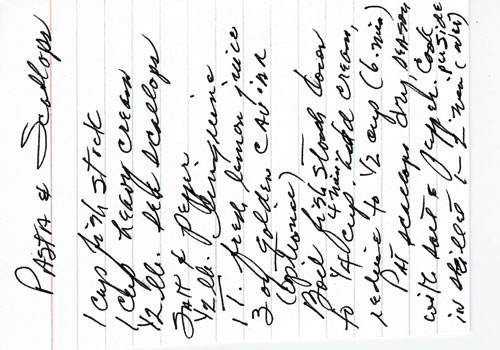 PASTA & Scallops
1 cup fish stock
1 cup heavy cream
1/2 lb. sea scallops
Salt & Pepper
1/2 lb. linguine
1 T. fresh lemon juice
3 oz golden CAVIAR
(optional)
Boil fish stock down
to 1/4 cup. 4 min Add cream,
reduce to 1/2 cup (6 min)
Pat scallops dry, season
with salt & pepper. Cook
in skillet 1-2 min per side